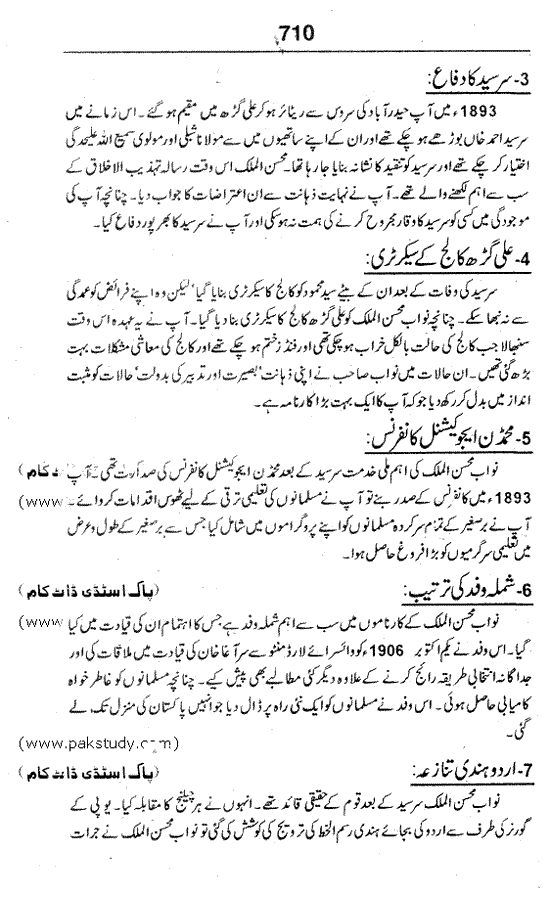 710
3- سرسید کا دفاع:
1893ء میں آپ حیدرآباد کی سروس سے ریٹائر ہو کر علی گڑھ میں مقیم ہو گئے۔ اس زمانے میں
سرسید احمد خاں بوڑھے ہو چکے تھے اور ان کے اپنے ساتھیوں میں سے مولانا شبلی اور مولوی سمیع اللہ علیحدگی
اختیار کر چکے تھے اور سرسید کو تنقید کا نشانہ بنایا جا رہا تھا۔ محسن الملک اس وقت رسالہ تہذیب الاخلاق کے
سب سے اہم لکھنے والے تھے۔ آپ نے نہایت ذہانت سے ان اعتراضات کا جواب دیا۔ چنانچہ آپ کی
موجودگی میں کسی کو سرسید کا وقار مجروح کرنے کی ہمت نہ ہو سکی اور آپ نے سرسید کا بھرپور دفاع کیا۔
4- علی گڑھ کالج کے سیکرٹری:
سرسید کی وفات کے بعد ان کے بیٹے سید محمود کو کالج کا سیکرٹری بنایا گیا' لیکن وہ اپنے فرائض کو عمدگی
سے نہ نبھا سکے۔ چنانچہ نواب محسن الملک کو علی گڑھ کالج کا سیکرٹری بنا دیا گیا۔ آپ نے یہ عہدہ اس وقت
سنبھالا جب کالج کی حالت بالکل خراب ہو چکی تھی اور فنڈز ختم ہو چکے تھے اور کالج کی معاشی مشکلات بہت
بڑھ گئی تھیں۔ ان حالات میں نواب صاحب نے اپنی ذہانت' بصیرت اور تدبیر کی بدولت' حالات کو مثبت
انداز میں بدل کر رکھ دیا جو کہ آپ کا ایک بہت بڑا کارنامہ ہے۔
5- محمڈن ایجوکیشنل کانفرنس:
نواب محسن الملک کی اہم ملی خدمت سرسید کے بعد محمڈن ایجوکیشنل کانفرنس کی صدارت تھی۔ آپ ڈاٹ کام )
1893ء میں کانفرنس کے صدر بنے تو آپ نے مسلمانوں کی تعلیمی ترقی کے لیے ٹھوس اقدامات کروائے۔ (www
آپ نے برصغیر کے تمام سرکردہ مسلمانوں کو اپنے پروگراموں میں شامل کیا جس سے برصغیر کے طول و عرض
میں تعلیمی سرگرمیوں کو بڑا فروغ حاصل ہوا۔
6- شملہ وفد کی ترتیب: (پاک اسٹڈی ڈاٹ کام )
نواب محسن الملک کے کارناموں میں سب سے اہم شملہ وفد ہے جس کا اہتمام ان کی قیادت میں کیا (www
گیا۔ اس وفد نے یکم اکتوبر 1906ء کو وائسرائے لارڈ منٹو سے سر آغا خان کی قیادت میں ملاقات کی اور
جداگانہ انتخابی طریقہ رائج کرنے کے علاوہ دیگر کئی مطالبے بھی پیش کیے۔ چنانچہ مسلمانوں کو خاطر خواہ
کامیابی حاصل ہوئی۔ اس وفد نے مسلمانوں کو ایک نئی راہ پر ڈال دیا جو انہیں پاکستان کی منزل تک لے
گئی۔
(www.pakstudy.com)
7- اردو ہندی تنازعہ: (پاک اسٹڈی ڈاٹ کام )
نواب محسن الملک سرسید کے بعد قوم کے حقیقی قائد تھے۔ انہوں نے ہر چیلنج کا مقابلہ کیا۔ یو پی کے
گورنر کی طرف سے اردو کی بجائے ہندی رسم الخط کی ترویج کی کوشش کی گئی تو نواب محسن الملک نے جرات